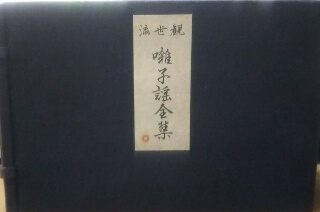 観世流
囃子謡全集